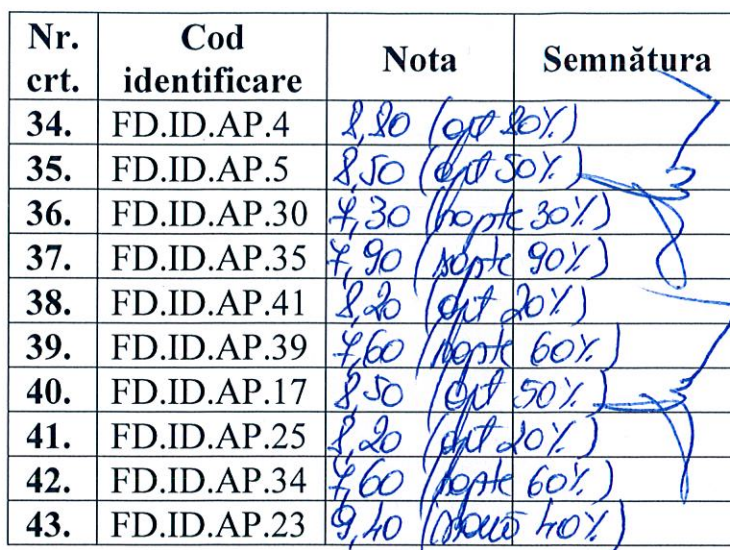 Nr. crt. Cod identificare Nota Semnătura
34. FD.ID.AP.4 8,80 (opt 80%)
35. FD.ID.AP.5 8,50 (opt 50%)
36. FD.ID.AP.30 7,30 (șapte 30%)
37. FD.ID.AP.35 7,90 (șapte 90%)
38. FD.ID.AP.41 8,20 (opt 20%)
39. FD.ID.AP.39 7,60 (șapte 60%)
40. FD.ID.AP.17 8,50 (opt 50%)
41. FD.ID.AP.25 8,20 (opt 20%)
42. FD.ID.AP.34 7,60 (șapte 60%)
43. FD.ID.AP.23 9,40 (nouă 40%)